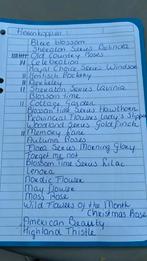 Blue blossom
Sheraton Series Belinda
Old Country Roses
Celebration
Royal Choice Series Windsor
Kentish Rockery
Berkeley
Sheraton Series Lavinia
Blossom time
Cottage Garden
Blossom time Series Hawthorn
Provincial Flowers Lady's Slipper
Woodland Series Goldfinch
Memory Lane
Autumn Roses
Flora Series Morning Glory
Forget me not
Blossom Time Series Lilac
Lenora
Nordic Flower
May Flower
Moss Rose
Wild Flowers of the Month
Christmas Rose
American Beauty
Highland Thistle